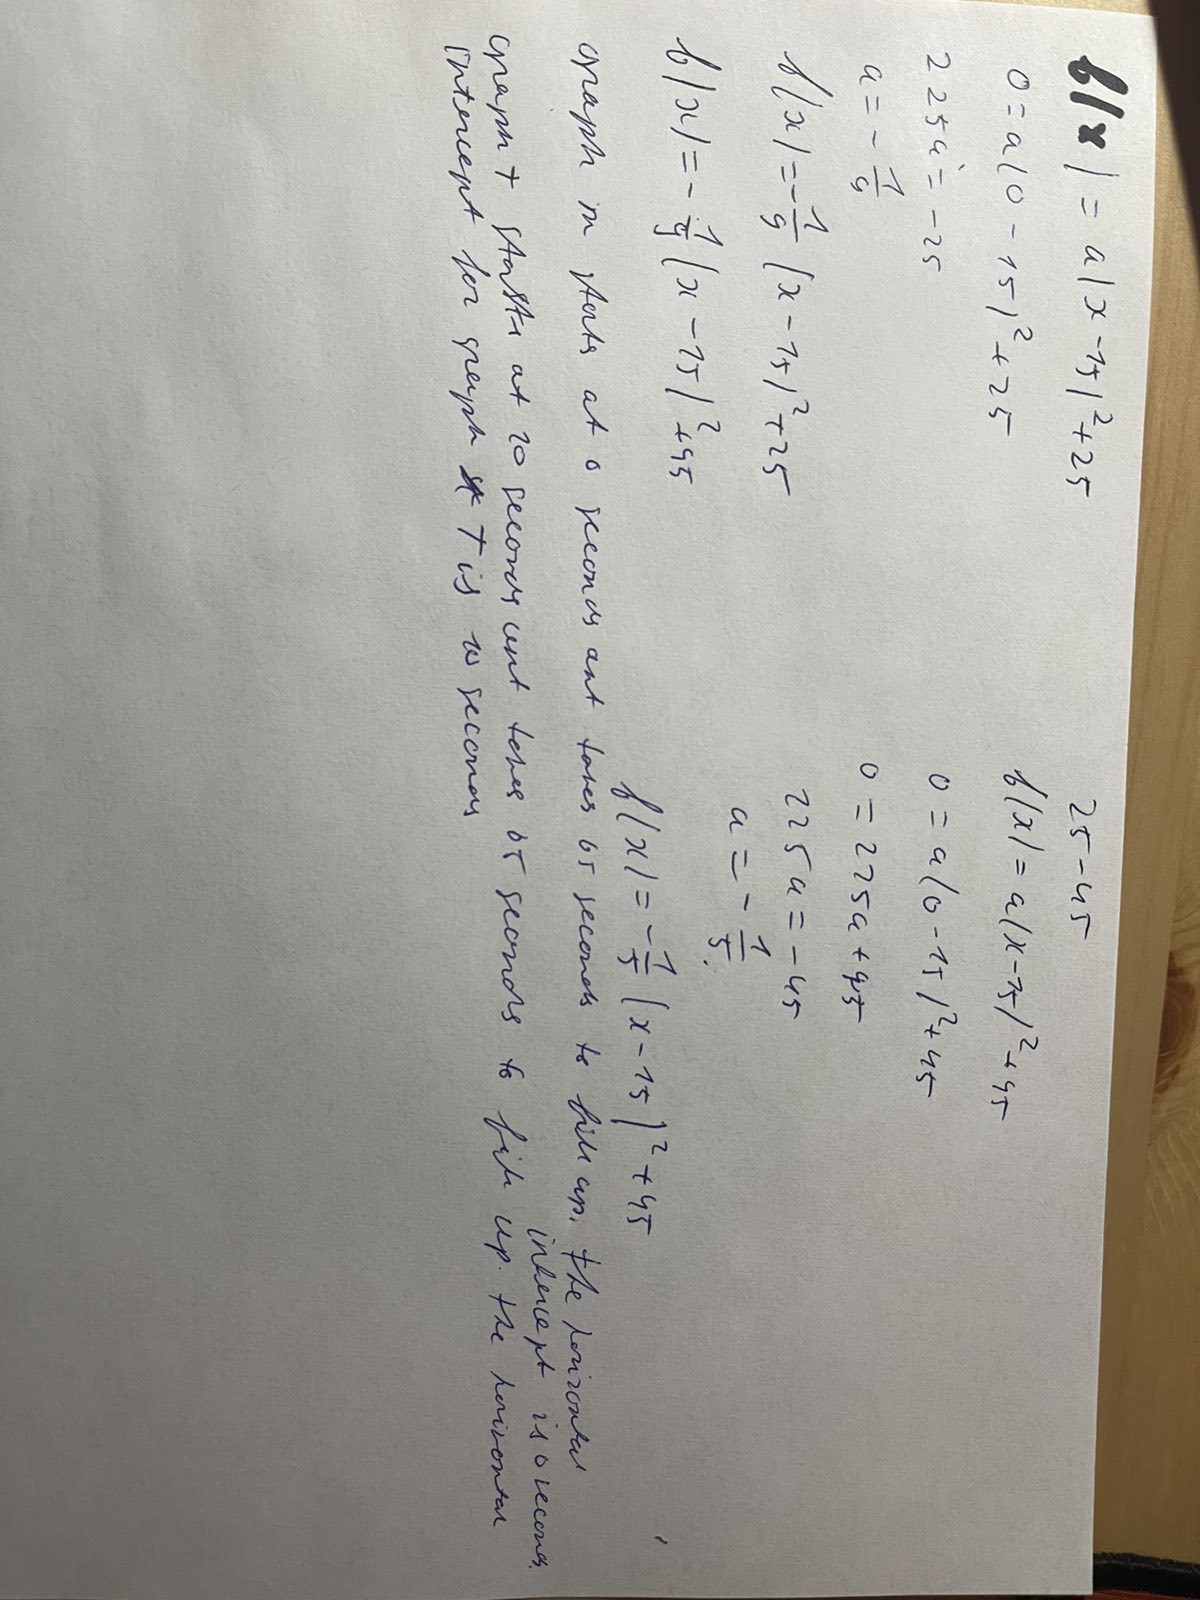 f(x) = a(x-15)²+25
0=a(0-15)²+25
225a=-25
a=-1/9
f(x)=-1/9(x-15)²+25
f(x)=-1/9(x-15)²+45
25-45
f(x)=a(x-15)²+45
0=a(0-15)²+45
0=225a+45
225a=-45
a=-1/5.
f(x)=-1/5(x-15)²+45
graph m starts at 0 seconds ant takes 65 seconds to fill up. the horizontal
intercept is 0 seconds
graph t starts at 20 seconds ant takes 65 seconds to fill up. the horizontal
intercept for graph T is seconds